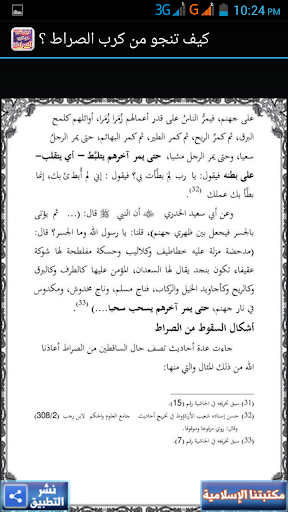 3G G 10:24 PM
كيف تنجو من كرب الصراط ؟
على جهنم، فيمرُّ الناسُ على قدر أعمالهم زُمَرا زُمَرا، أوائلهم كلمح
البرق، ثم كمرِّ الريح، ثم كمر الطير، ثم كمر البهائم، حتى يمر الرجلُ
سعيا، وحتى يمر الرجل مشيا، حتى يمر آخرهم يتلبَّط – أي يتقلب–
على بطنه فيقول: يا رب لِمَ بطَّأت بي؟ فيقول : إني لم أُبطئ بك، إنما
بطَّأ بك عملك (32).
وعن أبي سعيد الخدري أن النبي ﷺ قال: (... ثم يؤتى
بالجسر فيجعل بين ظهري جهنم)، قلنا: يا رسول الله وما الجسر؟ قال:
(مدحضة مزلة عليه خطاطيف وكلاليب وحسكة مفلطحة لها شوكة
عقيفاء تكون بنجد يقال لها السعدان، المؤمن عليها كالطرف وكالبرق
وكالريح وكأجاويد الخيل والركاب، فناج مسلم، وناج مخدوش، ومكدوس
في نار جهنم، حتى يمر آخرهم يسحب سحبا....) (33).
أشكال السقوط من الصراط
جاءت عدة أحاديث تصف حال الساقطين من الصراط أعاذنا
الله من ذلك المثال والتي منها:
(31) سبق تخريجه في الحاشية رقم (15).
(32) حسن إسناده شعيب الأرناؤوط في تخريج أحاديث جامع العلوم والحكم لابن رجب (308/2)
وقال: روي مرفوعا وموقوفا.
(33) سبق تخريجه في الحاشية رقم (7).
نشر
التطبيق
مكتبتنا الإسلامية